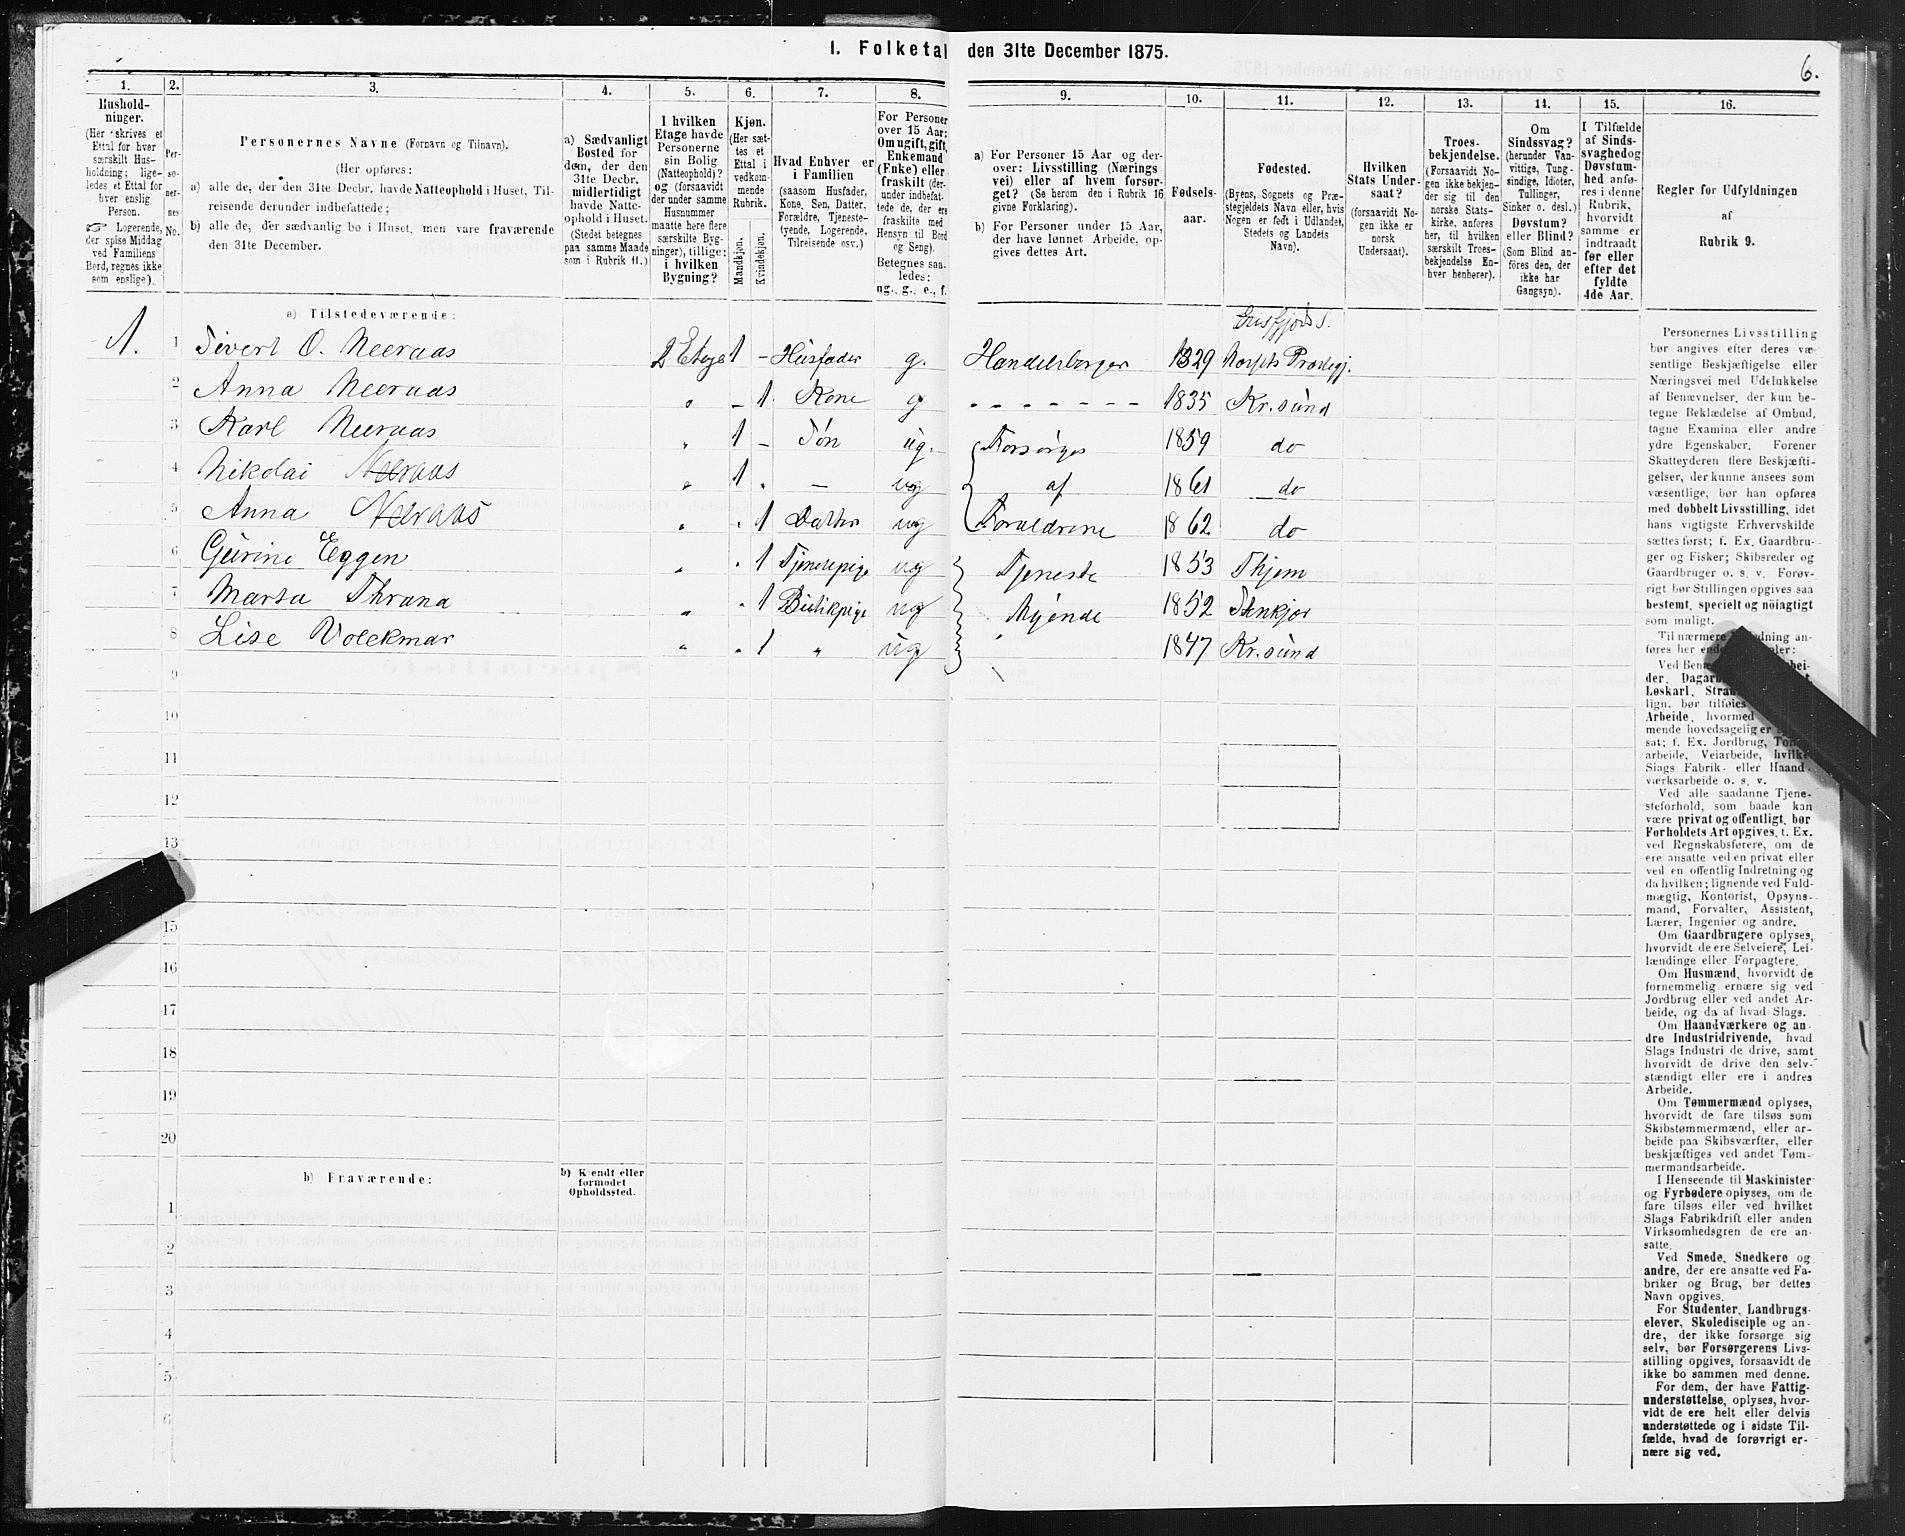 1. Folketal den 31te December 1875.
6.
1. 2. 3. 4. 5. 6. 7. 8. 9. 10. 11. 12. 13. 14. 15. 16.
Hushold-
ninger.
(Her skrives et
Ettal for hver
særskilt Hus-
holdning; lige-
ledes et Ettal for
hver enslig
Person.
☞ Logerende,
der spise Middag
ved Familiens
Bord, regnes ikke
som enslige).
Per-
so-
ner-
nes
No.
Personernes Navne (Fornavn og Tilnavn).
(Her opføres:
a) alle de, der den 31te Decbr. havde Natteophold i Huset, Til-
reisende derunder indbefattede;
b) alle de, der sædvanlig bo i Huset, men vare fraværende
den 31te December.
a) Sædvanligt
Bosted for
dem, der den
31te Decbr.
midlertidigt
havde Natte-
ophold i Huset.
(Stedet betegnes
paa samme Maade
som i Rubrik 11.)
I hvilken
Etage havde
Personerne
sin Bolig
(Natteophold)?
og (forsaavidt
der under samme
Husnummer
maatte høre flere
særskilte Byg-
ninger), tillige:
i hvilken
Bygning?
Kjøn.
(Her sæt-
tes et
Ettal i
vedkom-
mende
Rubrik.
Mandkjøn.
Kvindekjøn.
Hvad Enhver er
i Familien
(saasom Husfader,
Kone, Søn, Datter,
Forældre, Tjeneste-
tyende, Logerende,
Tilreisende osv.)
For Personer
over 15 Aar:
Om ugift, gift,
Enkemand
(Enke) eller
fraskilt (der-
under indbefat-
tede de, der ere
fraskilte med
Hensyn til Bord
og Seng).
Betegnes saa-
ledes:
ug., g., e., f.
a) For Personer 15 Aar og der-
over: Livsstilling (Nærings
vei) eller af hvem forsør-
get? (Se herom den i Rubrik 16
givne Forklaring).
b) For Personer under 15 Aar,
der have lønnet Arbeide, op-
gives dettes Art.
Fødsels-
aar.
Fødested.
(Byens, Sognets og Præ-
stegjeldets Navn eller, hvis
Nogen er født i Udlandet,
Stedets og Landets
Navn).
Hvilken
Stats Under-
saat?
(forsaavidt No-
gen ikke er
norsk
Undersaat).
Troes-
bekjendelse.
(Forsaavidt No-
gen ikke bekjen-
der sig til den
norske Stats-
kirke, anføres
her, til hvilken
særskilt Troes-
bekjendelse En-
hver henhører).
Om
Sindssvag?
(herunder Van-
vittige, Tung-
sindige, Idioter,
Tullinger,
Sinker o. desl.)
Døvstum?
eller Blind?
(Som Blind an-
føres den, der
ikke har
Gangsyn).
I Tilfælde
af Sinds-
svaghed og
Døvstum-
hed anfø-
res i denne
Rubrik,
hvorvidt
samme er
indtraadt
før eller
efter det
fyldte
4de Aar.
Regler for Udfyldningen
af
Rubrik 9.
a) Tilstedeværende:
1. 1 Sivert O. Neeraas 2 Etage 1 – Husfader g. Handelsborger 1829 Erisfjords S. Næssets Præstegj.
2 Anna Neeraas " – 1 Kone g - - - - - - - 1835 Kr.sund
3 Karl Neeraas " 1 – Søn ug. Forsørges 1859 do
4 Nikolai Neeraas " 1 " — ug af 1861 do
5 Anna Neeraas " " 1 Datter ug Foreldrene 1862 do
6 Gurine Eggen " " 1 Tjenestepige ug Tjeneste 1853 Thjem
7 Marta Thrana " " 1 Butikpige ug tyende 1852 Stenkjær
8 Lise Volckmar " " 1 " ug " 1847 Kr.sund
9
10
11
12
13
15
16
17
18
19
20
b) Fraværende:
b) Kjendt eller
formodet
Opholdssted.
1
2
3
4
5
6
Personernes Livsstilling
bør angives efter deres væ-
sentlige Beskjæftigelse eller
Næringsvei med Udelukkelse
af Benævnelser, der kun be-
tegne Beklædelse af Ombud,
tagne Examina eller andre
ydre Egenskaber. Forener
Skatteyderen flere Beskjæfti-
gelser, der kunne ansees som
væsentlige, bør han opføres
med dobbelt Livsstilling, idet
hans vigtigste Erhvervskilde
sættes først; f. Ex. Gaardbru-
ger og Fisker; Skibsreder og
Gaardbruger o. s. v. Forøv-
rigt bør Stillingen opgives saa
bestemt, specielt og nöiagtigt
som muligt.
Til nærmere
føres her
Ved
der,
Løskarl,
lign. bør tilføies
Arbeide, hvormed
mende hovedsagelig er
sat; f. Ex. Jordbrug,
arbeide, Veiarbeide, hvilket
Slags Fabrik- eller Haand-
værksarbeide o. s. v.
Ved alle saadanne Tjene-
steforhold, som baade kan
være privat og offentligt, bør
Forholdets Art opgives, t. Ex.
ved Regnskabsførere, om de
ere ansatte ved en privat eller
ved en offentlig Indretning og
da hvilken; lignende ved Fuld-
mægtig, Kontorist, Opsyns-
mand, Forvalter, Assistent,
Lærer, Ingeniør og andre.
Om Gaardbrugere oplyses,
hvorvidt de ere Selveiere, Lei-
lændinge eller Forpagtere.
Om Husmænd, hvorvidt de
fornemmelig ernære sig ved
Jordbrug eller ved andet Ar-
beide, og da af hvad Slags.
Om Haandværkere og an-
dre Industridrivende, hvad
Slags Industri de drive, samt
hvorvidt de drive den selv-
stændigt eller ere i andres
Arbeide.
Om Tømmermænd oplyses,
hvorvidt de fare tilsøs som
Skibstømmermænd, eller ar-
beide paa Skibsværfter, eller
beskjæftiges ved andet Tøm-
mermandsarbeide.
I Henseende til Maskinister
og Fyrbødere oplyses, om de
fare tilsøs eller ved hvilket
Slags Fabrikdrift eller anden
Virksomhedsgren de ere an-
satte.
Ved Smede, Snedkere og
andre, der ere ansatte ved Fa-
briker og Brug, bør dettes
Navn opgives.
For Studenter, Landbrugs-
elever, Skoledisciple og an-
dre, der ikke forsørge sig
selv, bør Forsørgerens Livs-
stilling opgives, forsaavidt de
ikke bo sammen med denne.
For dem, der have Fattig-
understøttelse, oplyses, hvor-
vidt de ere helt eller delvis
understøttede og i sidste Til-
fælde, hvad de forøvrigt er-
nære sig ved.